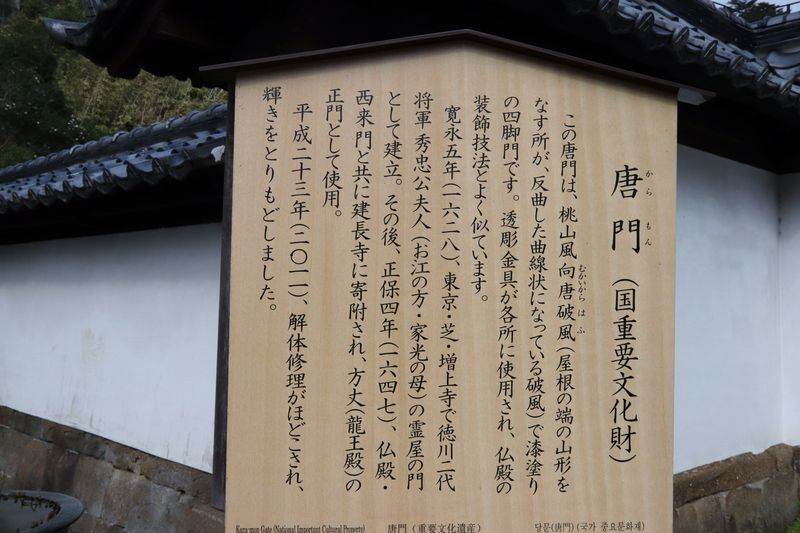 唐門(国重要文化財)
からもん
この唐門は、桃山風向唐破風(屋根の端の山形を
むかいからはふ
なす所が、反曲した曲線状になっている破風)で漆塗り
の四脚門です。透彫金具が各所に使用され、仏殿の
装飾技法とよく似ています。
寛永五年(一六二八)、東京・芝・増上寺で徳川二代
将軍秀忠公夫人(お江の方・家光の母)の霊屋の門
として建立。その後、正保四年(一六四七)、仏殿・
西来門と共に建長寺に寄附され、方丈(龍王殿)の
正門として使用。
平成二十三年(二〇一一)、解体修理がほどこされ、
輝きをとりもどしました。
Kara-mon Gate (National Important Cultural Property)
唐門(重要文化遺産)
당문(唐門)(국가 중요문화재)